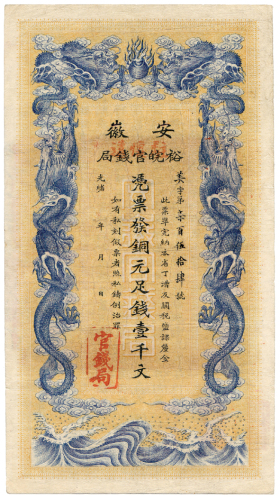 安徽
裕皖官錢局
字第 百伍拾肆號
此票準完納本省丁漕及關稅鹽課釐金
憑票發銅元足錢壹千文
如有私刻假票者照私鑄例治罪
光緒 年 月 日
官錢局